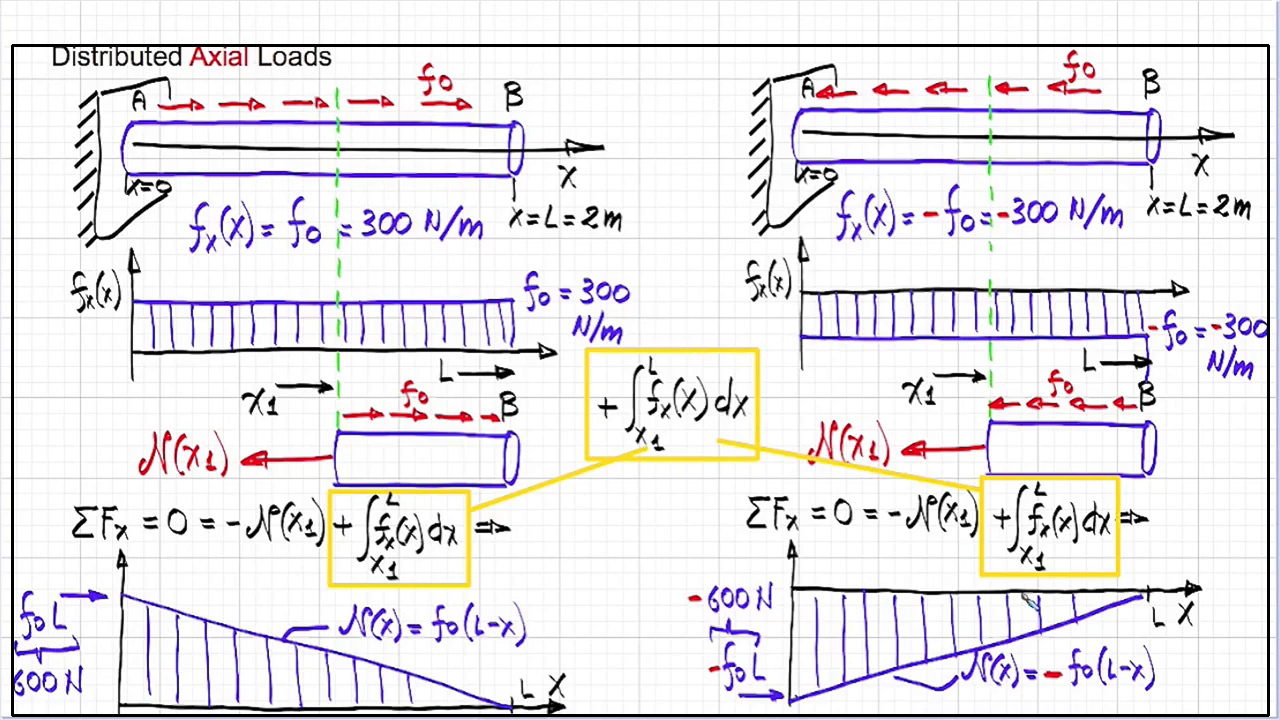 Distributed Axial Loads
A f0 B
x=0 X
x = L = 2m
fx(x) = f0 = 300 N/m
fx(x) f0 = 300
N/m
L
x1 f0 B
N(x1)
ΣFx = 0 = -N(x1) + ∫x1^L fx(x) dx ⇒
f0L
600 N
N(x) = f0(L-x)
L X
+ ∫x1^L fx(x) dx
A f0 B
x=0 X
x = L = 2m
fx(x) = -f0 = -300 N/m
fx(x) -f0 = -300
N/m
L
x1 f0 B
N(x1)
ΣFx = 0 = -N(x1) + ∫x1^L fx(x) dx ⇒
-600 N
-f0L
L X
N(x) = -f0(L-x)